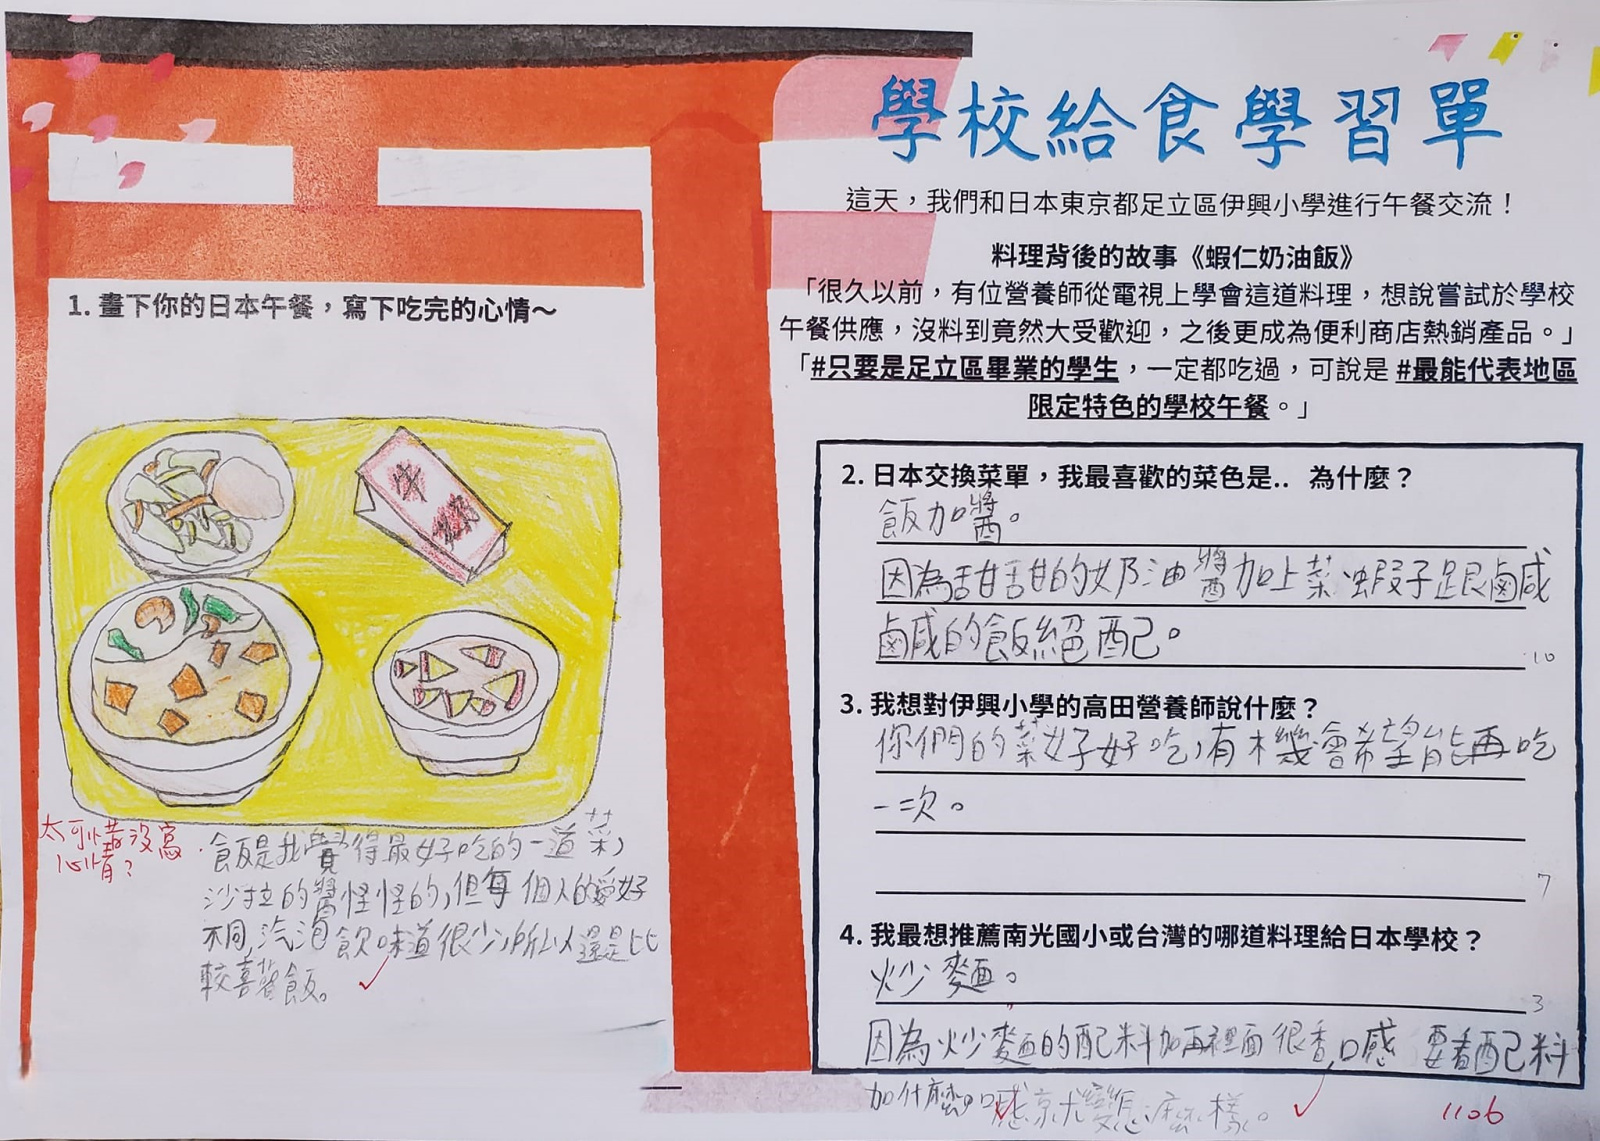 學校給食學習單
這天，我們和日本東京都足立區伊興小學進行午餐交流！
料理背後的故事《蝦仁奶油飯》
「很久以前，有位營養師從電視上學會這道料理，想說嘗試於學校
午餐供應，沒料到竟然大受歡迎，之後更成為便利商店熱銷產品。」
「#只要是足立區畢業的學生，一定都吃過，可說是 #最能代表地區
限定特色的學校午餐。」
1. 畫下你的日本午餐，寫下吃完的心情～
太可惜沒寫
心情?
飯是我覺得最好吃的一道菜，
沙拉的醬怪怪的，但每個人的愛好
不同，汽泡飲味道很少，所以還是比
較喜歡飯。
2. 日本交換菜單，我最喜歡的菜色是.. 為什麼？
飯加醬。
因為甜甜的奶油醬加上菜、蝦子跟鹹
鹹的飯絕配。
10
3. 我想對伊興小學的高田營養師說什麼？
你們的菜好好吃，有機會希望能再吃
一次。
7
4. 我最想推薦南光國小或台灣的哪道料理給日本學校？
炒麵。
3
因為炒麵的配料加再裡面很香，口感 要看配料
加什麼，口感就變怎麼樣。
1106